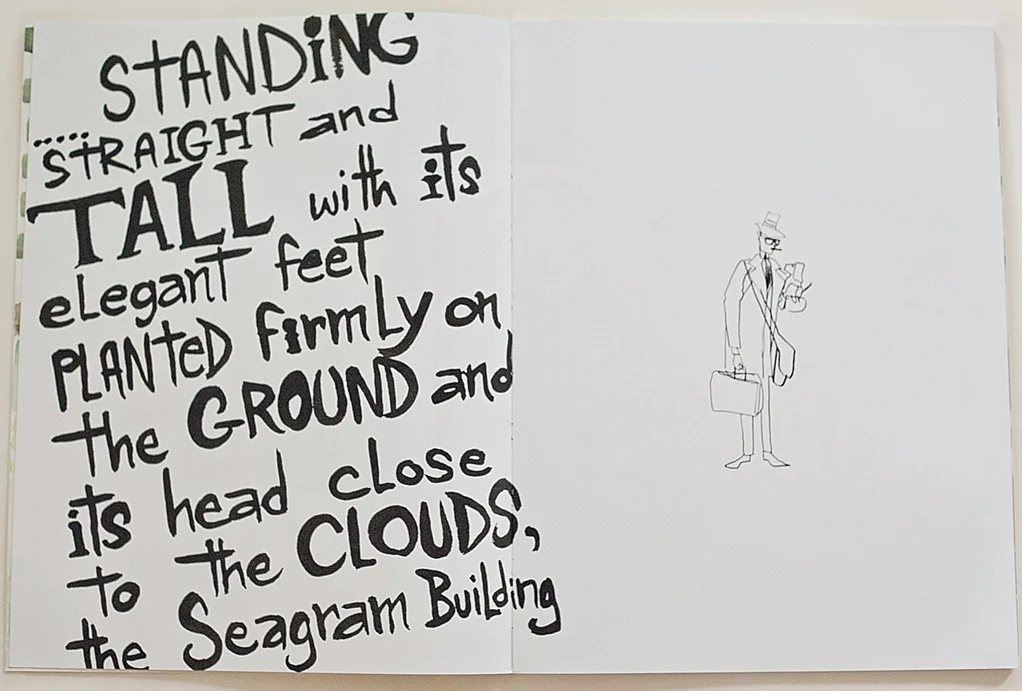 STANDiNG
.....STRAIGHT and
TALL with its
elegant feet
PLANTED firmLy on
the GROUND and
its head close
to the CLOUDS,
the Seagram BuiLding